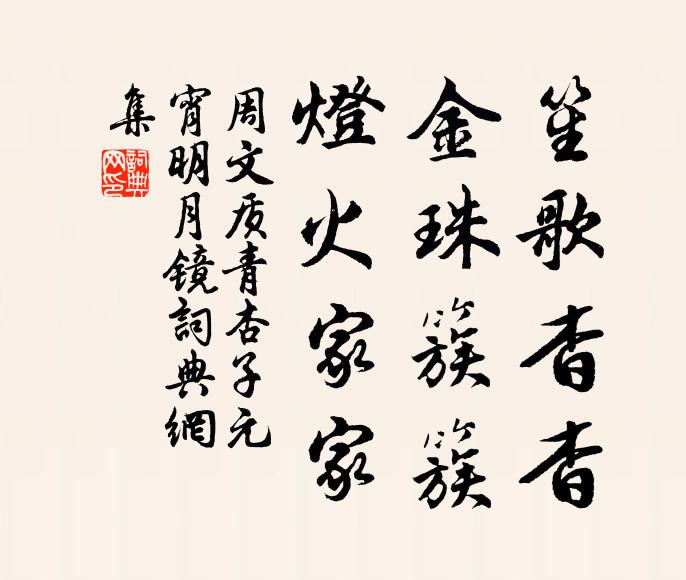 笙歌杳杳
金珠簇簇
燈火家家
周文质青杏子元
宵明月镜詞典網
集
詞典
网印